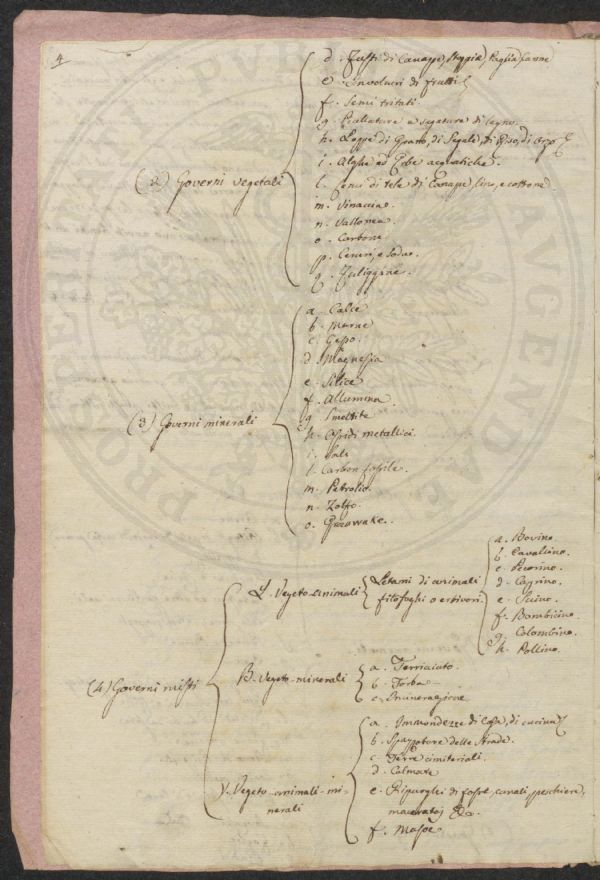 4
d. Fusti di Canappe, Steggie, Paglia, Canne
e. Involucri di frutti &
f. Semi tritati.
g. Piallature e segature di legno.
h. Loppe di Grano, di Segale, di Riso, di Orzo &
i. Alghe ed Erbe acquatiche.
(2) Governi vegetali
l. Cenci di tele di Canape, Lino, e cottone
m. Vinaccie.
n. Vallonea.
o. Carbone
p. Ceneri, e Sode.
q. Fuliggine.
a. Calce
b. Marne
c. Gesso.
d. Magnesia
e. Silice
f. Allumina.
(3) Governi minerali
g. Smeltite
h. Ossidi metallici
i. Sali
l. Carbon fossile.
m. Petrolio.
n. Zolfo.
o. Grauwake.
a. Bovino.
b. Cavallino.
c. Pecorino.
α. Vegeto-animali
Letami di animali
fitofaghi o erbivori.
d. Caprino.
e. Suino.
f. Bombicino.
g. Colombino.
h. Pollino.
(4) Governi misti
β. Vegeto-minerali
a. Terriciato.
b. Torba
c. Incinerazione
a. Immondezze di Casa, di cucina &
b. Spazzature delle Strade.
c. Terre cimiteriali.
d. Colmate
γ. Vegeto-animali-mi-
nerali
e. Ripurghi di fosse, canali, peschiere,
maceratoj &c.
f.